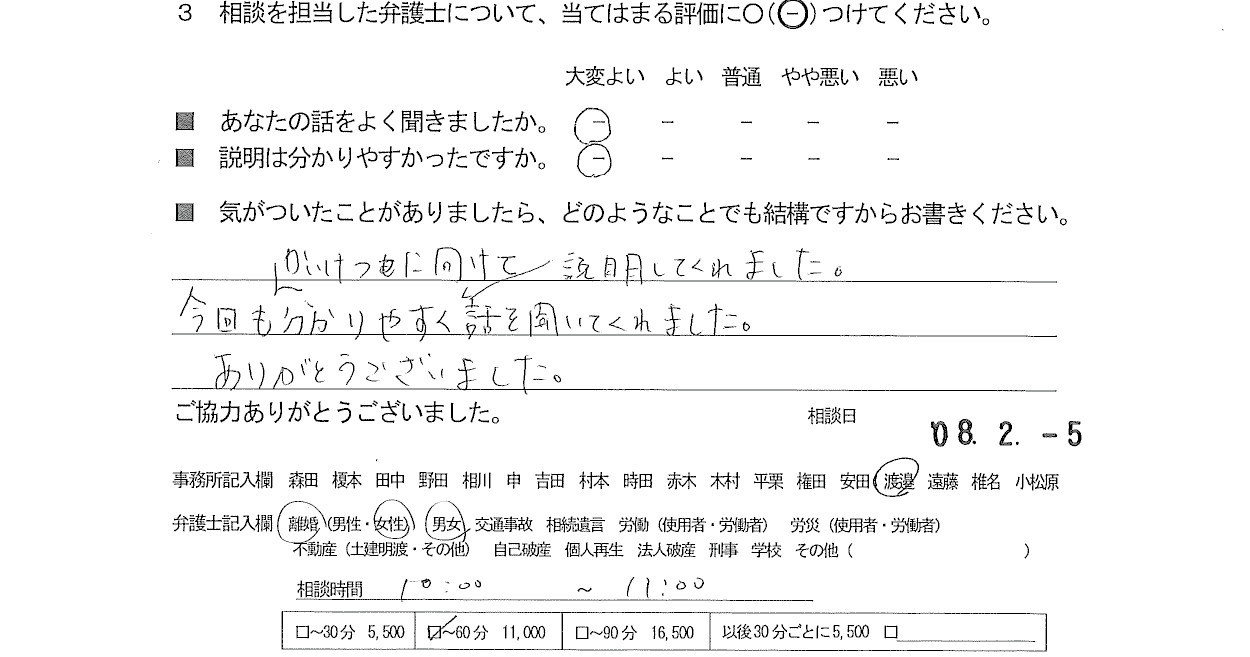 3 相談を担当した弁護士について、当てはまる評価に○(㊀)つけてください。
大変よい よい 普通 やや悪い 悪い
■ あなたの話をよく聞きましたか。 － － － － －
■ 説明は分かりやすかったですか。 － － － － －
■ 気がついたことがありましたら、どのようなことでも結構ですからお書きください。
に向けて 説明してくれました。
今回も分かりやすく話を聞いてくれました。
ありがとうございました。
ご協力ありがとうございました。 相談日
'08. 2. -5
事務所記入欄 森田 榎本 田中 野田 相川 申 吉田 村本 時田 赤木 木村 平栗 権田 安田 渡邉 遠藤 椎名 小松原
弁護士記入欄 離婚 (男性・女性) 男女 交通事故 相続遺言 労働 (使用者・労働者) 労災 (使用者・労働者)
不動産 (土建明渡・その他) 自己破産 個人再生 法人破産 刑事 学校 その他 ( )
相談時間 10:00 ～ 11:00
□～30分 5,500 ☑～60分 11,000 □～90分 16,500 以後30分ごとに5,500 □